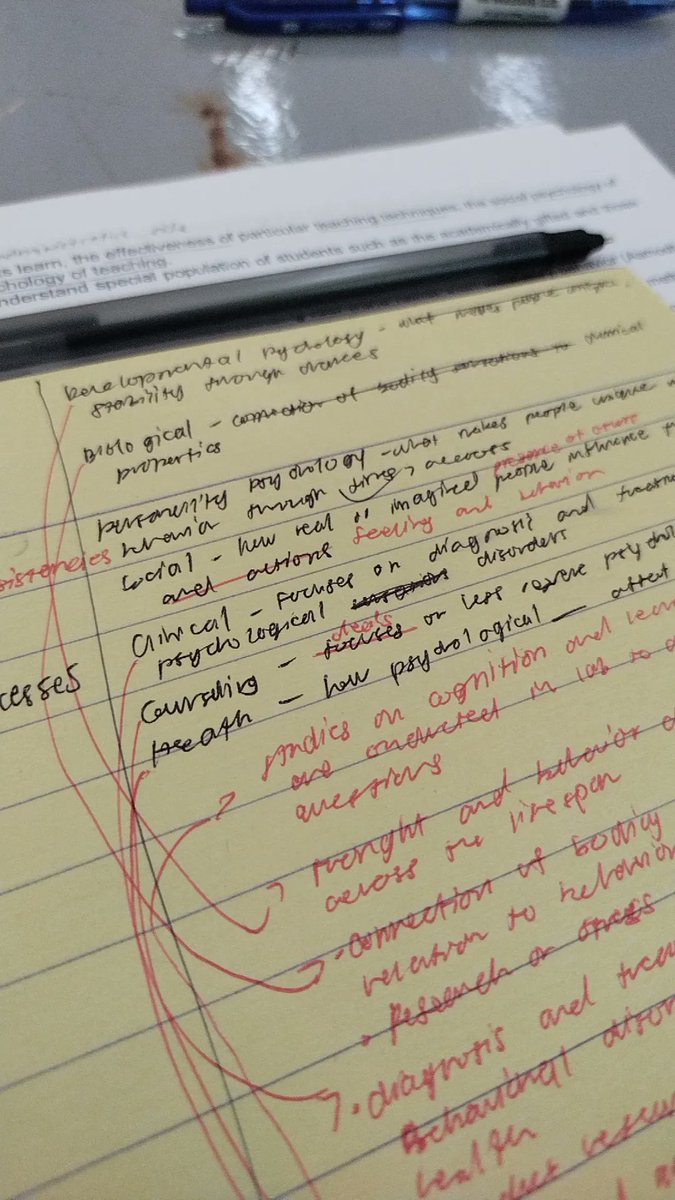 s learn, the effectiveness of particular teaching techniques, the social psychology of
chology of teaching.
nderstand special population of students such as the academically gifted and those
Developmental Pychology - what makes people unique.
stability through
Biological - connection of bodily to chemical
properties
personality psychology - what makes people unique
behavior through times, across
presence of others
sistencies
Social - how real or imagined people influence
and actions feeling and behavior
Clinical - focuses on diagnosis and treatme
psychological disorders
deals
Counseling - focuses on less severe psychol
cesses
Health - how psychological - affect
studies on cognition and lear
are conducted in lab to
questions
thought and behavior
across the lifespan
• connection of bodily
relation to behavior
• Research on
• diagnosis and trea
Behavioral disor
health